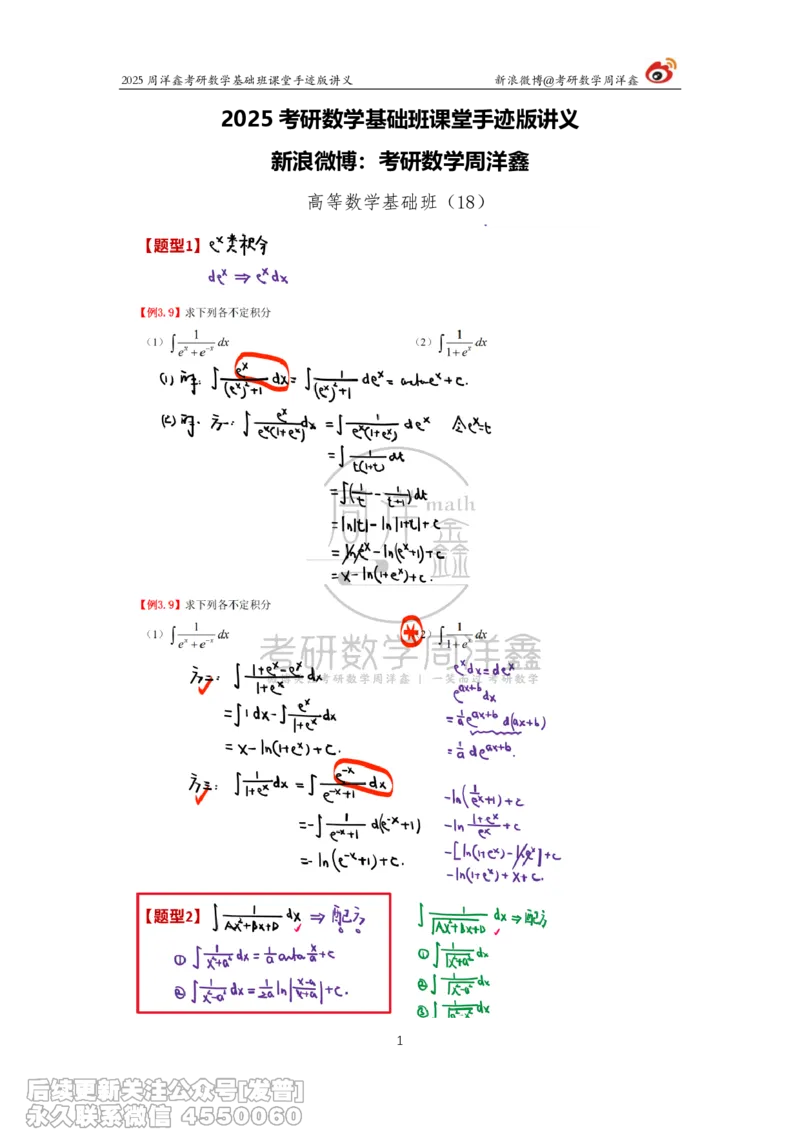 2025 周洋鑫考研数学基础班课堂手迹版讲义 新浪微博@考研数学周洋鑫
2025 考研数学基础班课堂手迹版讲义
新浪微博：考研数学周洋鑫
高等数学基础班（18）
【题型1】e^x类积分
de^x ⇒ e^x dx
【例3.9】求下列各不定积分
（1）∫ 1/(e^x+e^{-x}) dx （2）∫ 1/(1+e^x) dx
(1) 解: ∫ e^x/((e^x)²+1) dx = ∫ 1/((e^x)²+1) de^x = arctan e^x + C.
(2) 解. 方一: ∫ e^x/(e^x(1+e^x)) dx = ∫ 1/(e^x(1+e^x)) de^x 令e^x=t
= ∫ 1/(t(1+t)) dt
= ∫ (1/t - 1/(t+1)) dt
= ln|t| - ln|1+t| + C
= ln e^x - ln(e^x+1) + C
= x - ln(1+e^x) + C.
周洋鑫 math
【例3.9】求下列各不定积分
（1）∫ 1/(e^x+e^{-x}) dx （2）∫ 1/(1+e^x) dx
考研数学周洋鑫
考研数学周洋鑫 | 一笑而过 考研数学
方二: ∫ (1+e^x-e^x)/(1+e^x) dx
= ∫ 1 dx - ∫ e^x/(1+e^x) dx
= x - ln(1+e^x) + C.
e^x dx = de^x
e^{ax+b} dx
= 1/a e^{ax+b} d(ax+b)
= 1/a de^{ax+b}.
方三: ∫ 1/(1+e^x) dx = ∫ e^{-x}/(e^{-x}+1) dx
= -∫ 1/(e^{-x}+1) d(e^{-x}+1)
= -ln(e^{-x}+1) + C.
-ln(1/e^x+1) + C
-ln (1+e^x)/e^x + C
-[ln(1+e^x) - ln e^x] + C
-ln(1+e^x) + x + C.
【题型2】∫ 1/(Ax²+Bx+D) dx ⇒ 配方
① ∫ 1/(x²+a²) dx = 1/a arctan x/a + C
② ∫ 1/(x²-a²) dx = 1/2a ln|(x-a)/(x+a)| + C.
∫ 1/√(Ax²+Bx+D) dx ⇒ 配方
① ∫ 1/√(x²+a²) dx
② ∫ 1/√(x²-a²) dx
③ ∫ 1/√(a²-x²) dx
1
后续更新关注公众号[发普]
永久联系微信 4550060